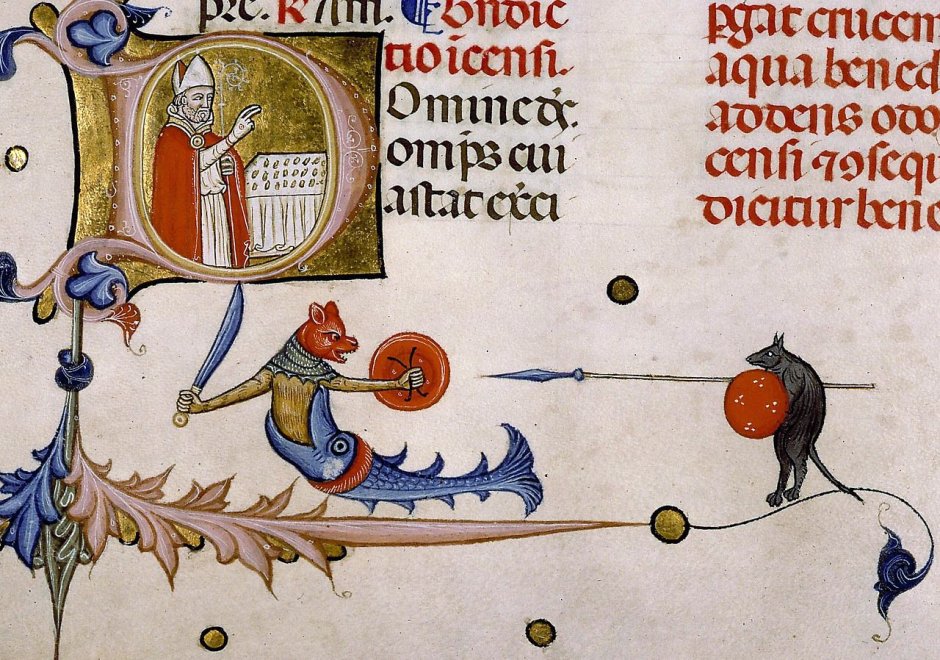 pre. ℟ Am. Bndic
tio icensi.
Omine ds.
omps cui
astat exci
pgat crucem
aqua bened
addens odo
censi ⁊ ꝯsequ
dicitur bene